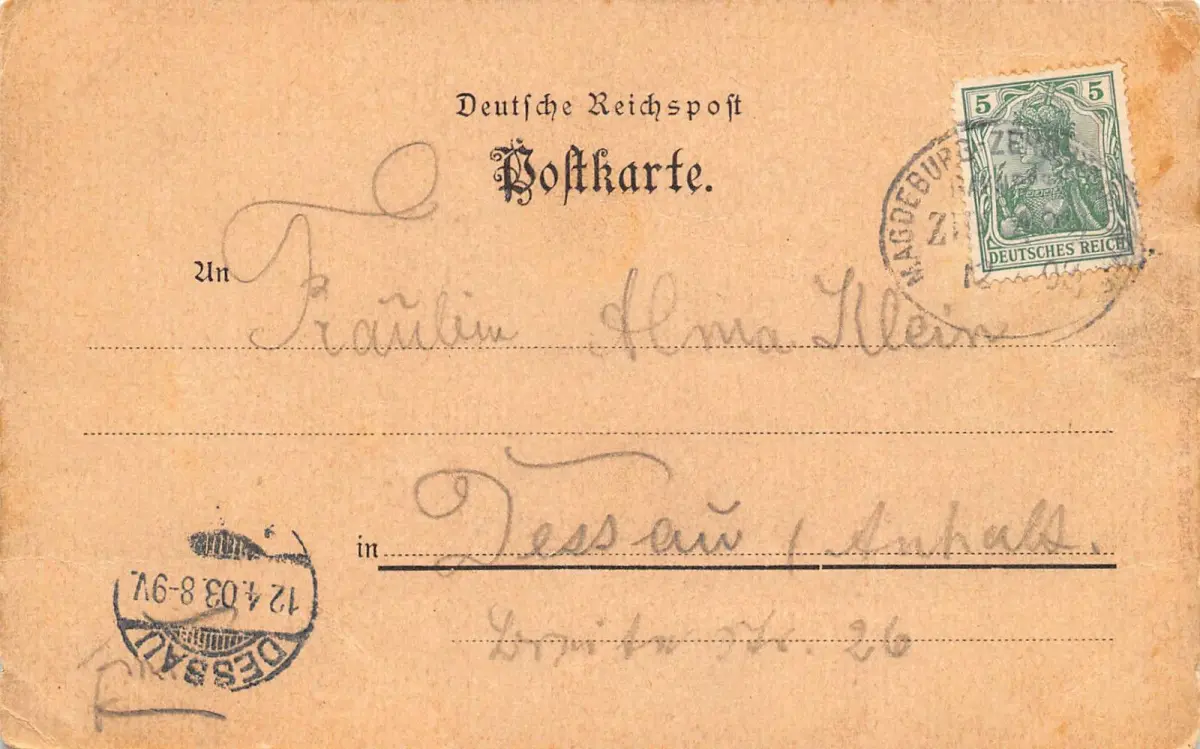 Deutsche Reichspost
Postkarte.
5 5
DEUTSCHES REICH
MAGDEBURG ZERB
An
Fräulein Alma Klein
in Dessau / Anhalt.
Breite Str. 26
DESSAU
12.4.03.8-9V.